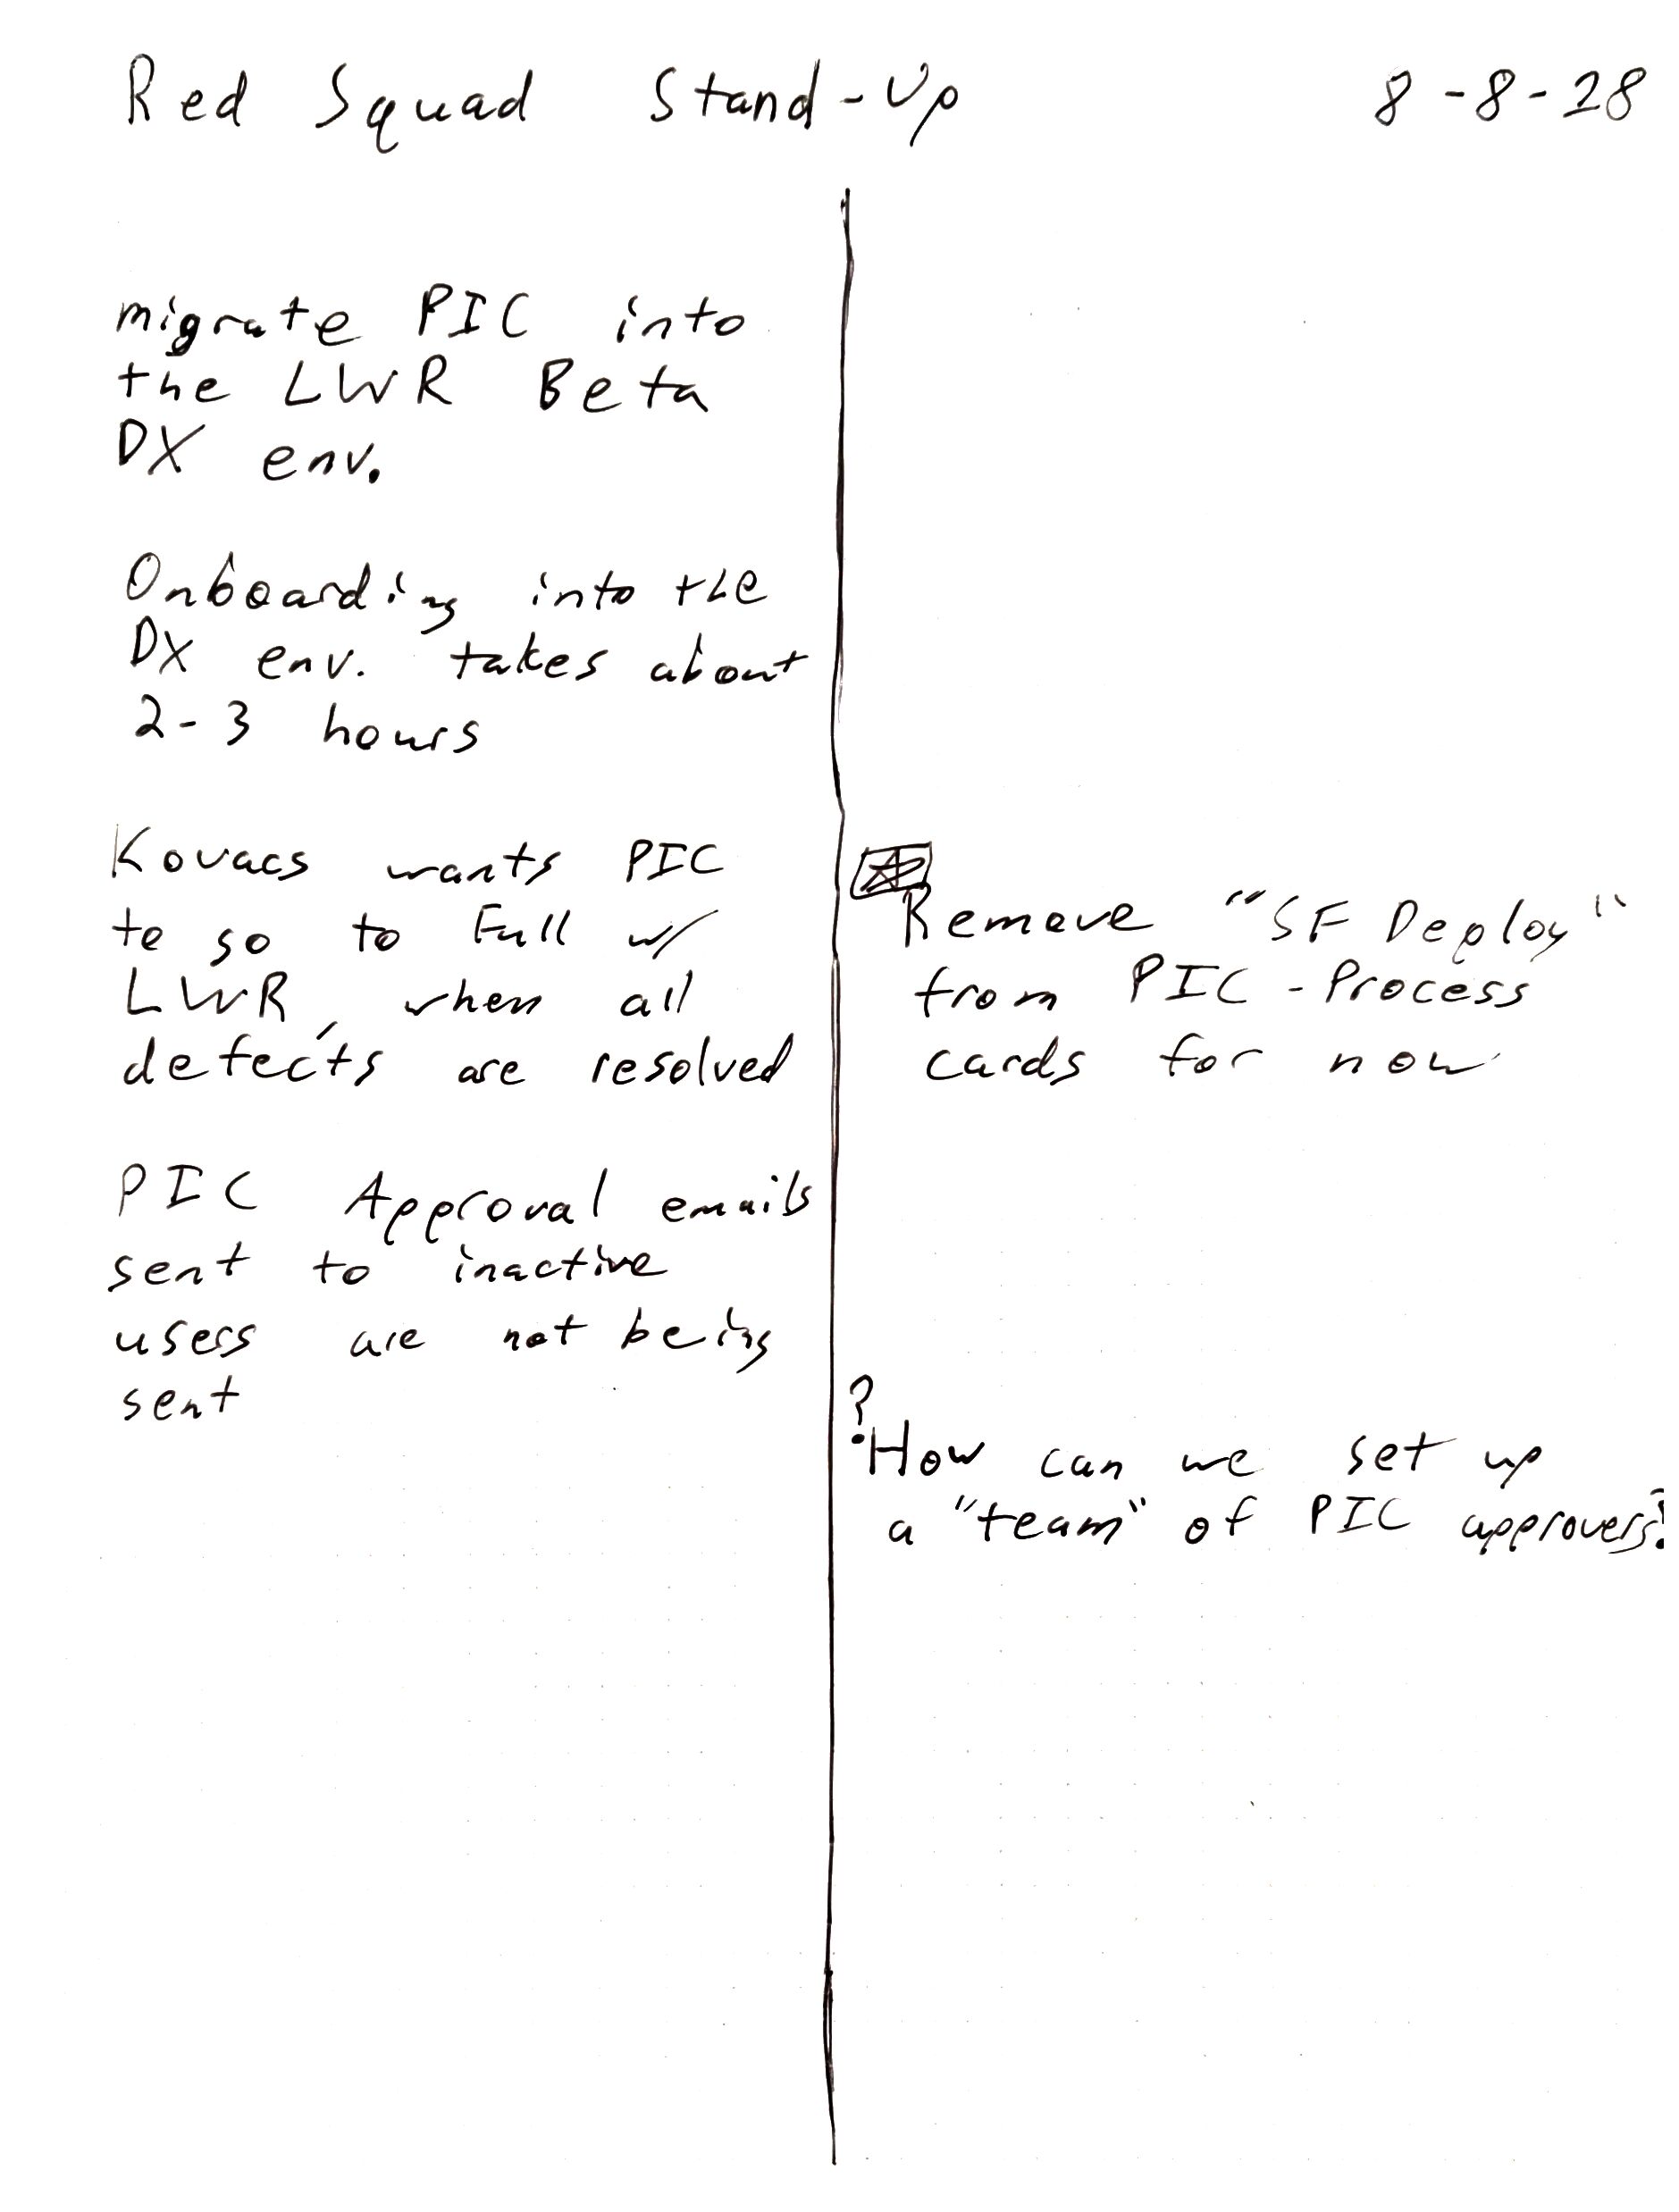 Red Squad Stand-Up 8-8-28
migrate PIC into
the LWR Beta
DX env.
Onboarding into the
DX env. takes about
2-3 hours
Kovacs wants PIC
te so to Full w/
LWR, when all
defects are resolved
PIC Approval emails
sent to inactive
users are not being
sent
Remove "SF Deploy"
from PIC-Process
cards for now
?
How can we set up
a "team" of PIC approvers?